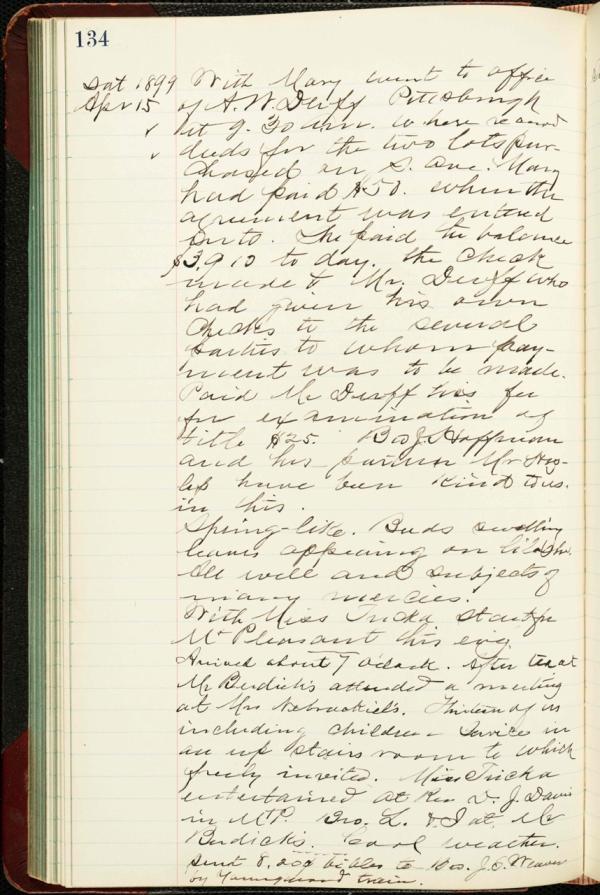 134
Sat 1899 With Mary went to office
Apr 15 of A. W. Duff Pittsburgh
at 9.30 a.m. where received
deeds for the two lots pur-
chased on S. Ave. Mary
had paid $50. when the
agreement was entered
into. She paid the balance
$3,910 to day. the check
made to Mr. Duff who
had given his own
checks to the several
parties to whom pay-
ment was to be made.
Paid Mr Duff his fee
for examination of
title $25. Bro J. Hoffman
and his partner Mr
have been kind to us.
in this.
Spring-like. Buds swelling
leaves appearing on lilac
All well and subjects of
many mercies.
With Miss Tricka start for
Mt Pleasant this eve'g
Arrived about 7 o'clock. After tea at
Mr Berdick's attended a meeting
at Mrs Thirteen of us
including children - Service in
an up stairs room to which
freely invited. Miss Tricka
entertained at Rev D. J. Davis
in Mt P. Bro. L. & I at Mr
Berdick's. Cool weather.
Send 8. bibles to Bro. J. E. Weaver
by Youngwood train.